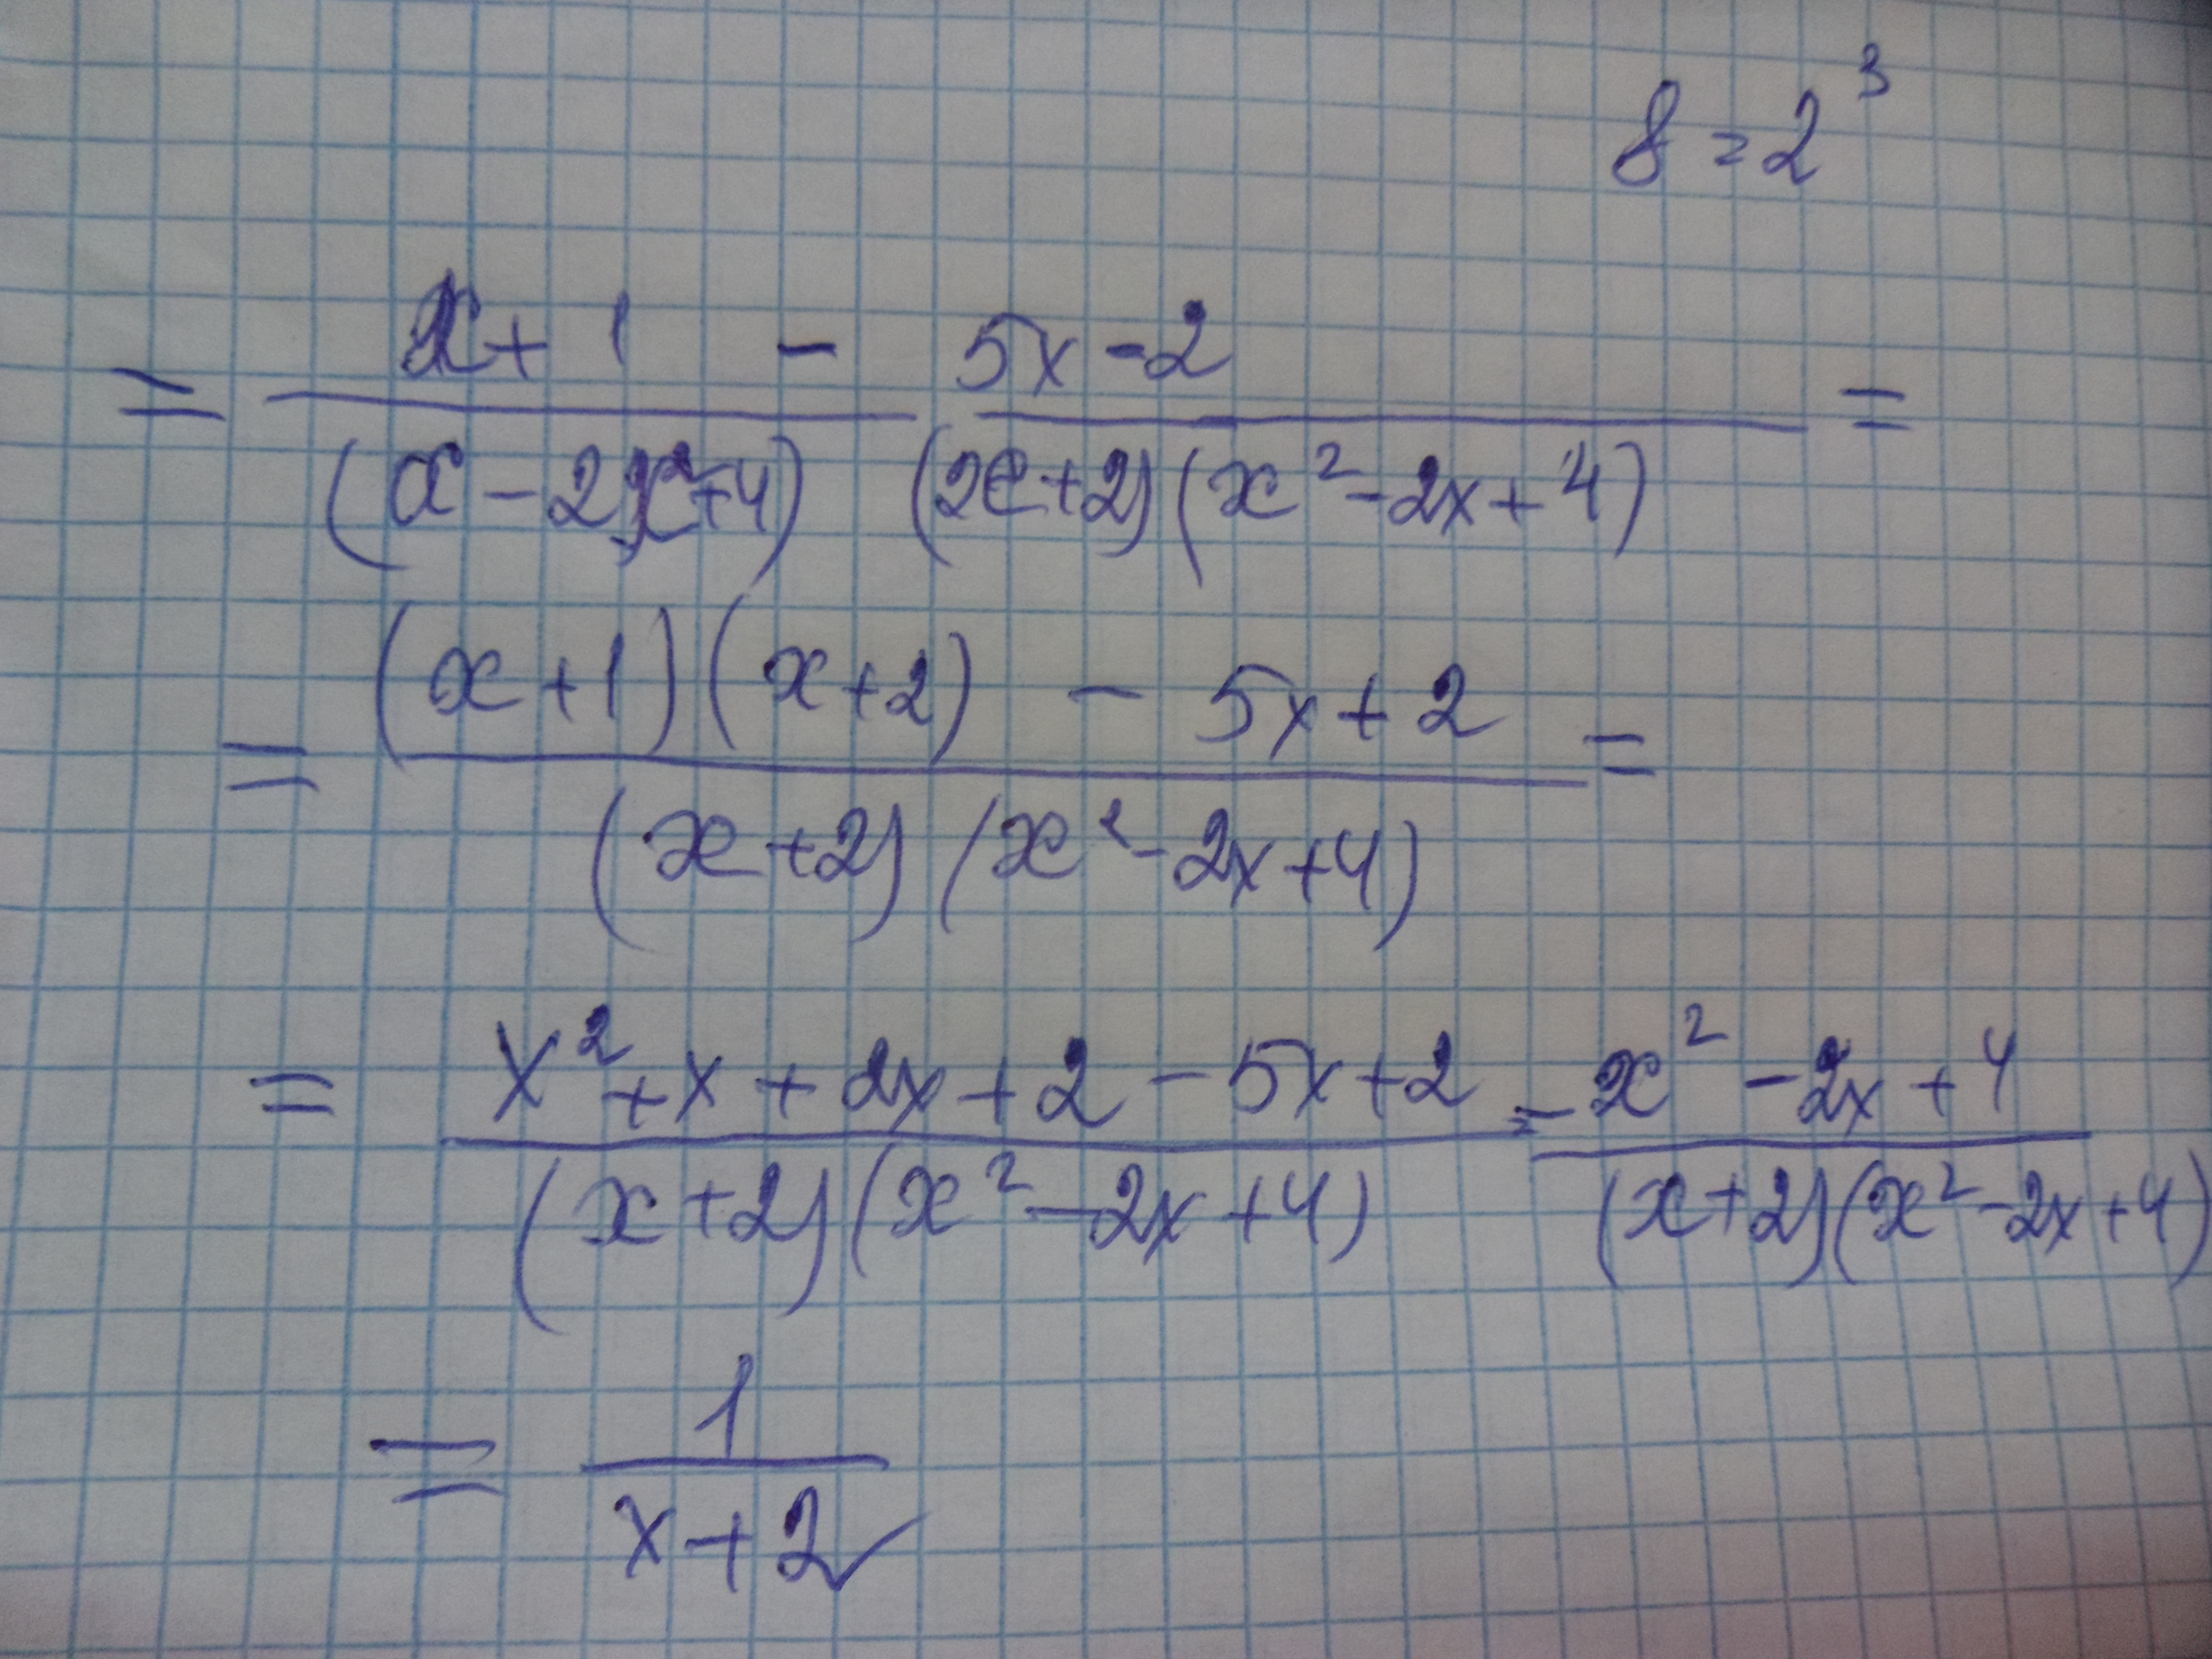 8 = 2³
= (x + 1)/(x - 2x² + 4) - (5x - 2)/((x + 2)(x² - 2x + 4)) =
= ((x + 1)(x + 2) - 5x + 2)/((x + 2)(x² - 2x + 4)) =
= (x² + x + 2x + 2 - 5x + 2)/((x + 2)(x² - 2x + 4)) = (x² - 2x + 4)/((x + 2)(x² - 2x + 4))
= 1/(x + 2) ✓